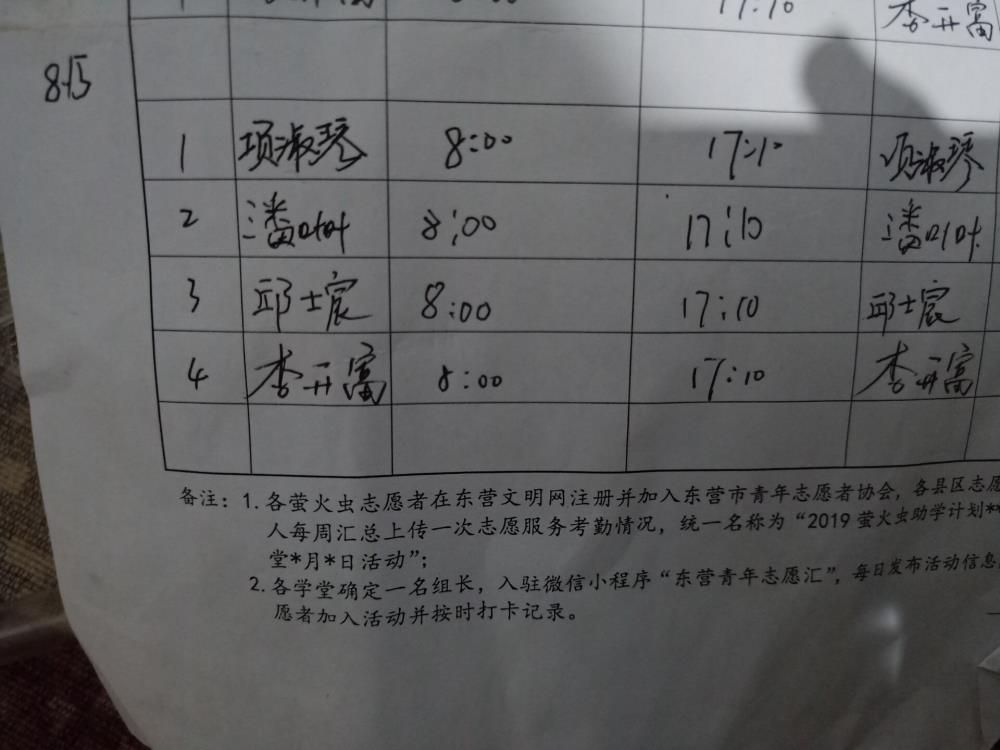 17:10 李开富
8.15
1 项淑琴 8:00 17:10 项淑琴
2 潘 8:00 17:10 潘
3 邱士宸 8:00 17:10 邱士宸
4 李开富 8:00 17:10 李开富
备注：1. 各萤火虫志愿者在东营文明网注册并加入东营市青年志愿者协会，各县区志愿
人每周汇总上传一次志愿服务考勤情况，统一名称为“2019 萤火虫助学计划**
堂*月*日活动”；
2. 各学堂确定一名组长，入驻微信小程序“东营青年志愿汇”，每日发布活动信息
愿者加入活动并按时打卡记录。